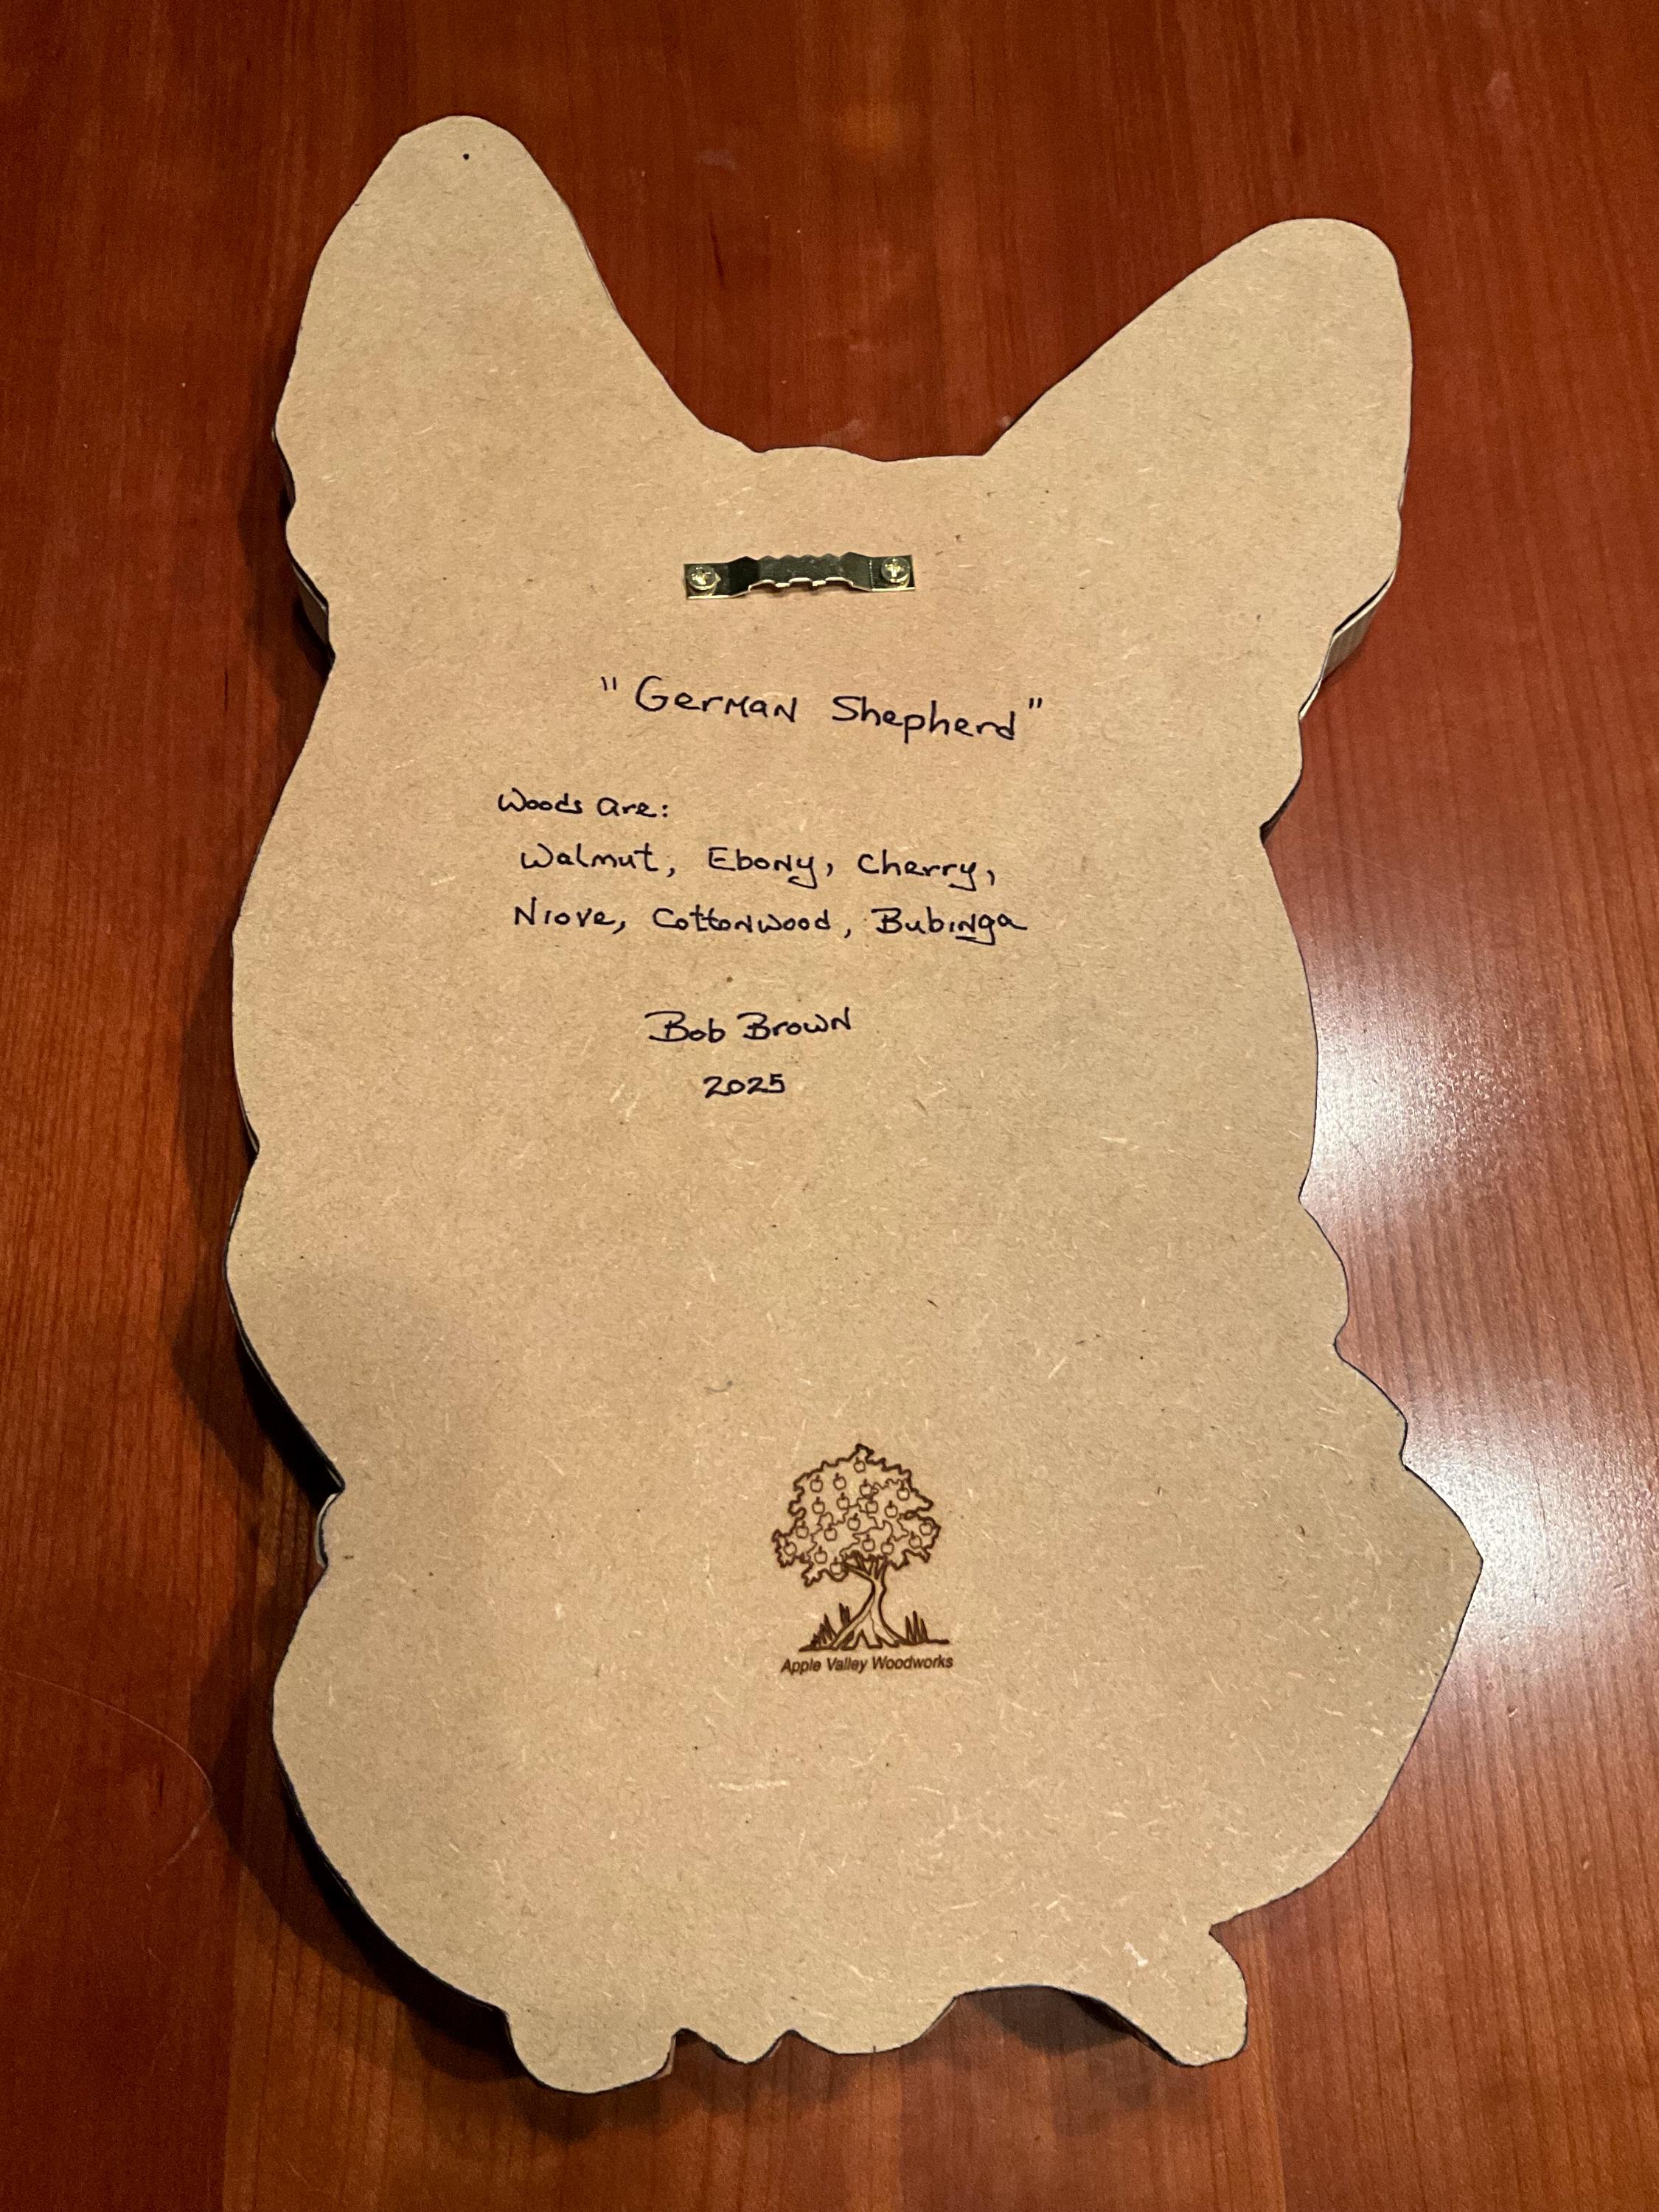 "German Shepherd"
Woods are:
Walnut, Ebony, Cherry,
Niove, Cottonwood, Bubinga
Bob Brown
2025
Apple Valley Woodworks